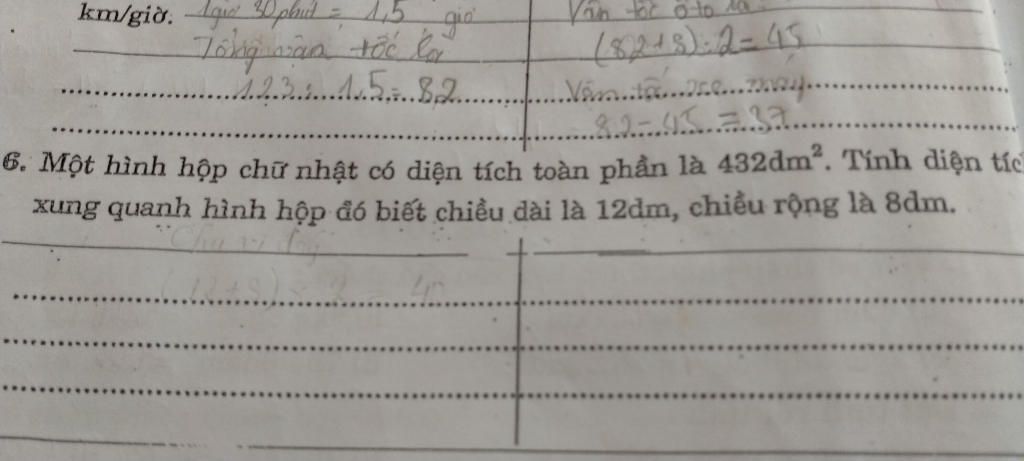 km/giờ. 1 giờ 30 phút = 1,5 giờ
Vận tốc ô tô là
Tổng vận tốc là
(82+8):2=45
123 : 1,5 = 82
Vận tốc xe máy
82 - 45 = 37
6. Một hình hộp chữ nhật có diện tích toàn phần là 432dm². Tính diện tíc
xung quanh hình hộp đó biết chiều dài là 12dm, chiều rộng là 8dm.
Chu vi đáy
(12+8) × 2 = 40